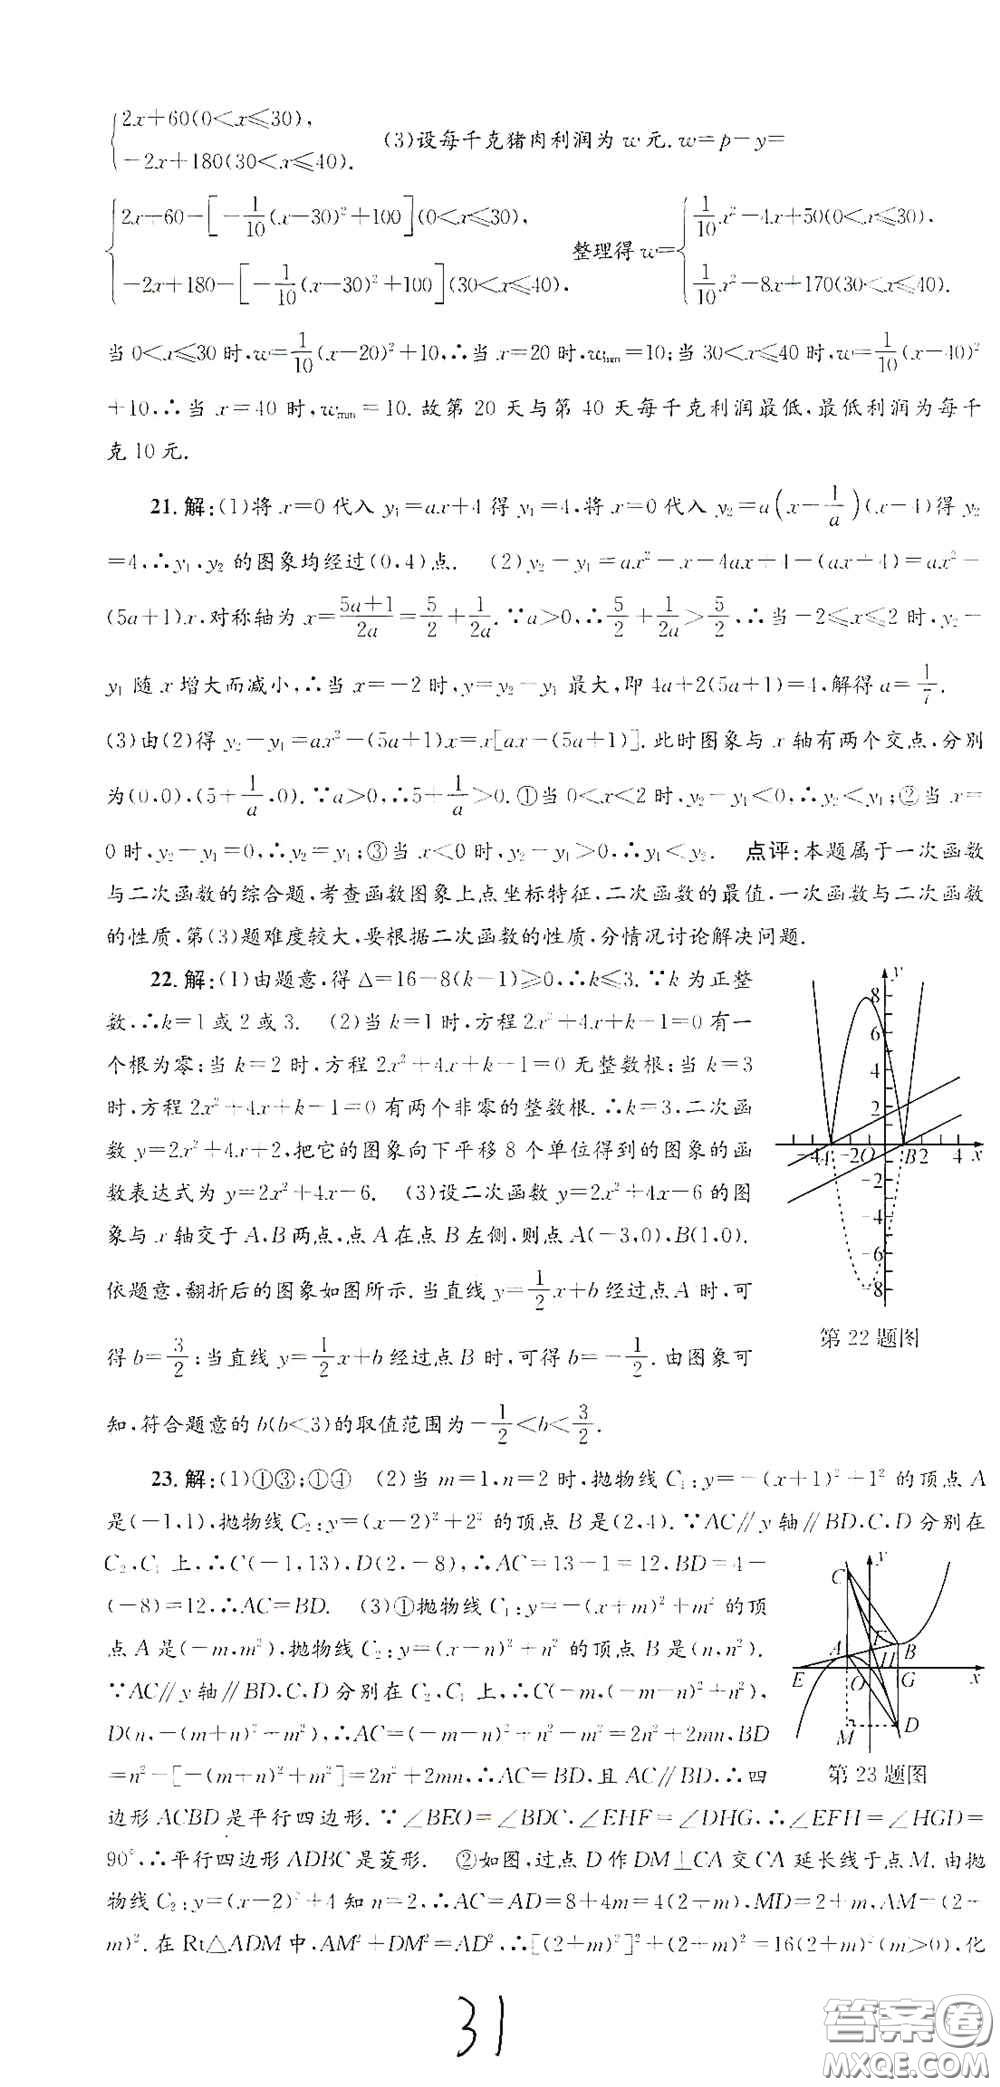 {2x+60(0<x≤30),
-2x+180(30<x≤40).
(3)设每千克猪肉利润为 w 元.w=p-y=
{2x+60-[-1/10(x-30)²+100](0<x≤30),
-2x+180-[-1/10(x-30)²+100](30<x≤40),
整理得 w={1/10x²-4x+50(0<x≤30),
1/10x²-8x+170(30<x≤40).
当 0<x≤30 时,w=1/10(x-20)²+10,∴当 x=20 时,wmin=10;当 30<x≤40 时,w=1/10(x-40)²
+10,∴当 x=40 时,wmin=10.故第 20 天与第 40 天每千克利润最低,最低利润为每千
克 10 元.
21.解:(1)将 x=0 代入 y₁=ax+4 得 y₁=4,将 x=0 代入 y₂=a(x-1/a)(x-4)得 y₂
=4,∴y₁,y₂ 的图象均经过(0,4)点. (2)y₂-y₁=ax²-x-4ax+4-(ax+4)=ax²-
(5a+1)x,对称轴为 x=5a+1/2a=5/2+1/2a.∵a>0,∴5/2+1/2a>5/2,∴当-2≤x≤2 时,y₂-
y₁ 随 x 增大而减小,∴当 x=-2 时,y=y₂-y₁ 最大,即 4a+2(5a+1)=4,解得 a=1/7.
(3)由(2)得 y₂-y₁=ax²-(5a+1)x=x[ax-(5a+1)].此时图象与 x 轴有两个交点,分别
为(0,0),(5+1/a,0).∵a>0,∴5+1/a>0.①当 0<x<2 时,y₂-y₁<0,∴y₂<y₁;②当 x=
0 时,y₂-y₁=0,∴y₂=y₁;③当 x<0 时,y₂-y₁>0,∴y₁<y₂. 点评:本题属于一次函数
与二次函数的综合题,考查函数图象上点坐标特征,二次函数的最值,一次函数与二次函数
的性质,第(3)题难度较大,要根据二次函数的性质,分情况讨论解决问题.
22.解:(1)由题意,得 Δ=16-8(k-1)≥0,∴k≤3.∵k 为正整
数,∴k=1 或 2 或 3. (2)当 k=1 时,方程 2x²+4x+k-1=0 有一
个根为零;当 k=2 时,方程 2x²+4x+k-1=0 无整数根;当 k=3
时,方程 2x²+4x+k-1=0 有两个非零的整数根.∴k=3,二次函
数 y=2x²+4x+2,把它的图象向下平移 8 个单位得到的图象的函
数表达式为 y=2x²+4x-6. (3)设二次函数 y=2x²+4x-6 的图
象与 x 轴交于 A,B 两点,点 A 在点 B 左侧,则点 A(-3,0),B(1,0).
依题意,翻折后的图象如图所示.当直线 y=1/2x+b 经过点 A 时,可
得 b=3/2;当直线 y=1/2x+b 经过点 B 时,可得 b=-1/2.由图象可
知,符合题意的 b(b<3)的取值范围为-1/2<b<3/2.
y
8
6
4
2
-4 A -2 O B 2 4 x
-2
-4
-6
-8
第 22 题图
23.解:(1)①③;①④ (2)当 m=1,n=2 时,抛物线 C₁:y=-(x+1)²+1² 的顶点 A
是(-1,1),抛物线 C₂:y=(x-2)²+2² 的顶点 B 是(2,4).∵AC∥y 轴∥BD,C,D 分别在
C₂,C₁ 上,∴C(-1,13),D(2,-8),∴AC=13-1=12,BD=4-
(-8)=12,∴AC=BD. (3)①抛物线 C₁:y=-(x+m)²+m² 的顶
点 A 是(-m,m²),抛物线 C₂:y=(x-n)²+n² 的顶点 B 是(n,n²).
∵AC∥y 轴∥BD,C,D 分别在 C₂,C₁ 上,∴C(-m,(-m-n)²+n²),
D(n,-(m+n)²+m²),∴AC=(-m-n)²+n²-m²=2n²+2mn,BD
=n²-[-(m+n)²+m²]=2n²+2mn,∴AC=BD,且 AC∥BD,∴四
边形 ACBD 是平行四边形.∵∠BEO=∠BDC,∠EHF=∠DHG,∴∠EFH=∠HGD=
90°,∴平行四边形 ADBC 是菱形. ②如图,过点 D 作 DM⊥CA 交 CA 延长线于点 M.由抛
物线 C₂:y=(x-2)²+4 知 n=2,∴AC=AD=8+4m=4(2+m),MD=2+m,AM=(2+
m)².在 Rt△ADM 中,AM²+DM²=AD²,∴[(2+m)²]²+(2+m)²=16(2+m)²(m>0),化
y
C
F
A
B
H
E
O
G
x
M
D
第 23 题图
31
答案卷
MXQE.COM